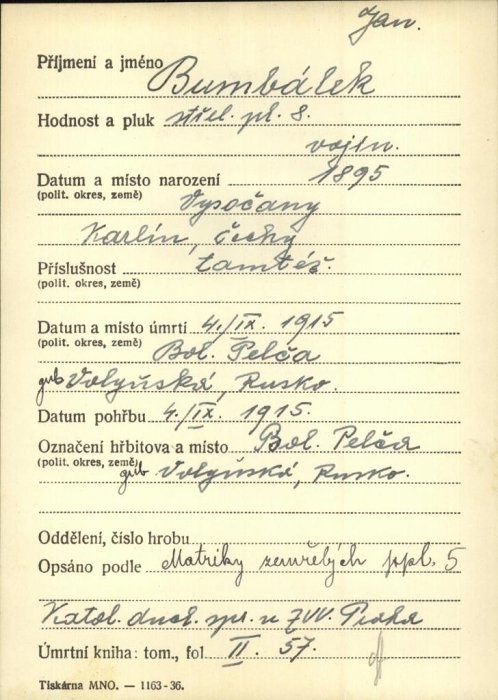 Jan.
Příjmení a jméno Bumbálek
Hodnost a pluk střel. pl. 8.
vojín.
Datum a místo narození 1895
(polit. okres, země) Vysočany
Karlín, Čechy
Příslušnost tamtéž.
(polit. okres, země)
Datum a místo úmrtí 4./IX. 1915
(polit. okres, země) Bol. Pelča
gub Volyňská, Rusko.
Datum pohřbu 4./IX. 1915.
Označení hřbitova a místo Bol. Pelča
(polit. okres, země) gub Volyňská, Rusko.
Oddělení, číslo hrobu
Opsáno podle Matriky zemřelých ppl. 5
Katol. duch. spr. u ZVV. Praha
Úmrtní kniha: tom., fol. II. 57.
Tiskárna MNO. — 1163-36.